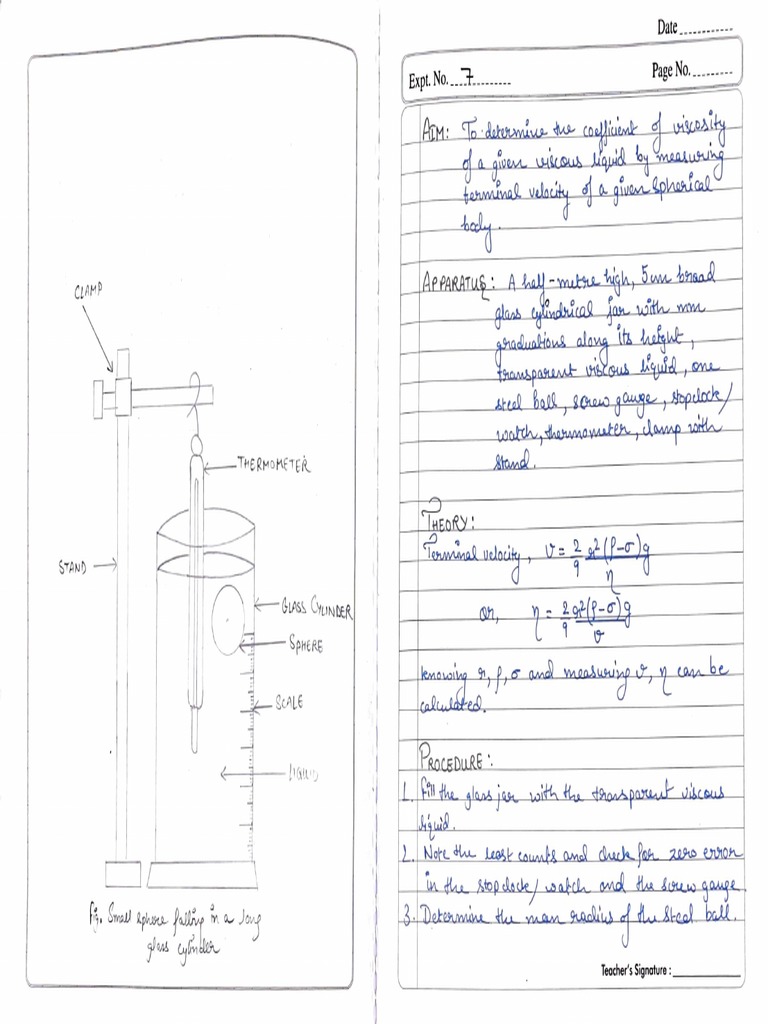 CLAMP
THERMOMETER
STAND
GLASS CYLINDER
SPHERE
SCALE
LIQUID
Fig. Small sphere falling in a long
glass cylinder
Date
Expt. No. 7
Page No.
AIM: To determine the coefficient of viscosity
of a given viscous liquid by measuring
terminal velocity of a given spherical
body.
APPARATUS: A half-metre high, 5cm broad
glass cylindrical jar with mm
graduations along its height,
transparent viscous liquid, one
steel ball, screw gauge, stopclock/
watch, thermometer, clamp with
stand.
THEORY:
Terminal velocity, v = 2/9 r²(ρ-σ)g/η
or, η = 2/9 r²(ρ-σ)g/v
knowing r, ρ, σ and measuring v, η can be
calculated.
PROCEDURE:
1. Fill the glass jar with the transparent viscous
liquid.
2. Note the least counts and check for zero error
in the stopclock/watch and the screw gauge.
3. Determine the mean radius of the steel ball.
Teacher's Signature :